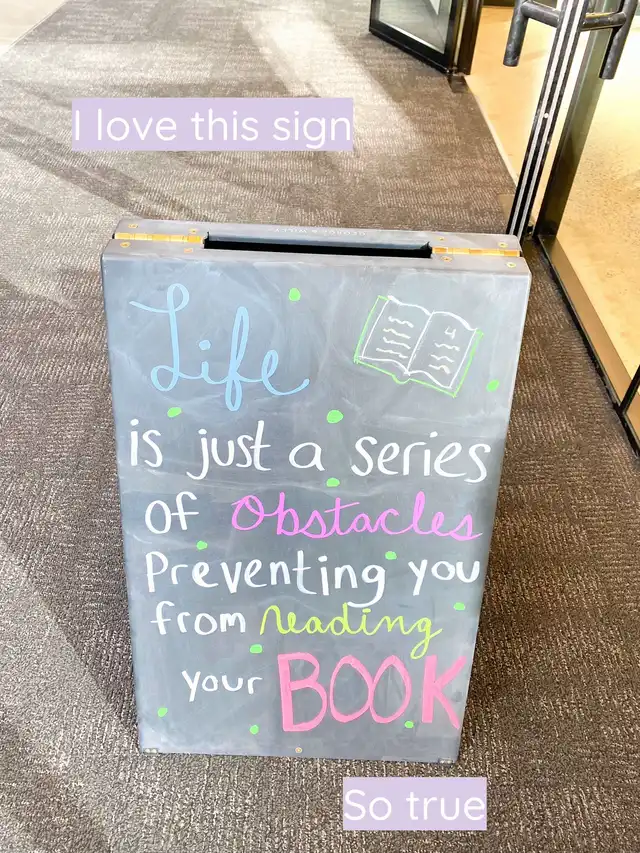 I love this sign
Life
is just a series
of Obstacles
Preventing you
from reading
your BOOK
So true